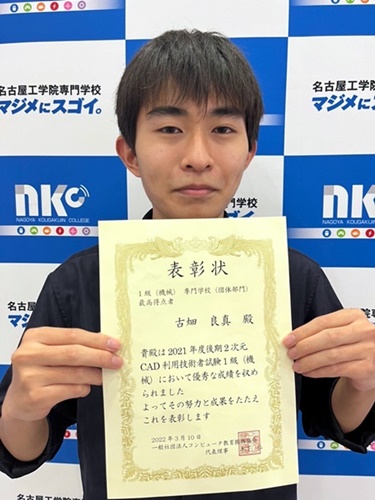 名古屋工学院専門学校
マジメにスゴイ。
名古屋工学院専門学校
マジメにスゴイ。
nkc
NAGOYA KOUGAKUIN COLLEGE
専門学校
スゴイ。
nkc
NAGOYA KOUGAKUIN COLLEGE
名古屋
マジ
表彰状
1級（機械） 専門学校（団体部門）
最高得点者
古畑 良真 殿
貴殿は2021年度後期2次元
CAD利用技術者試験1級（機
械）において優秀な成績を収め
られました
よってその努力と成果をたたえ
これを表彰します
2022年3月10日
一般社団法人コンピュータ教育振興協会
代表理事